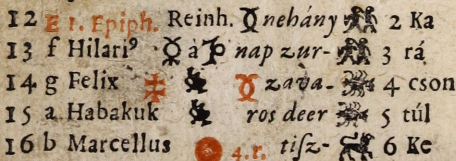 12 E 1. Epiph. Reinh. nehány 2 Ka
13 f Hilari⁹ à nap zur- 3 rá
14 g Felix zava- 4 cson
15 a Habakuk ros deer 5 túl
16 b Marcellus 4. r. tiſz- 6 Ke